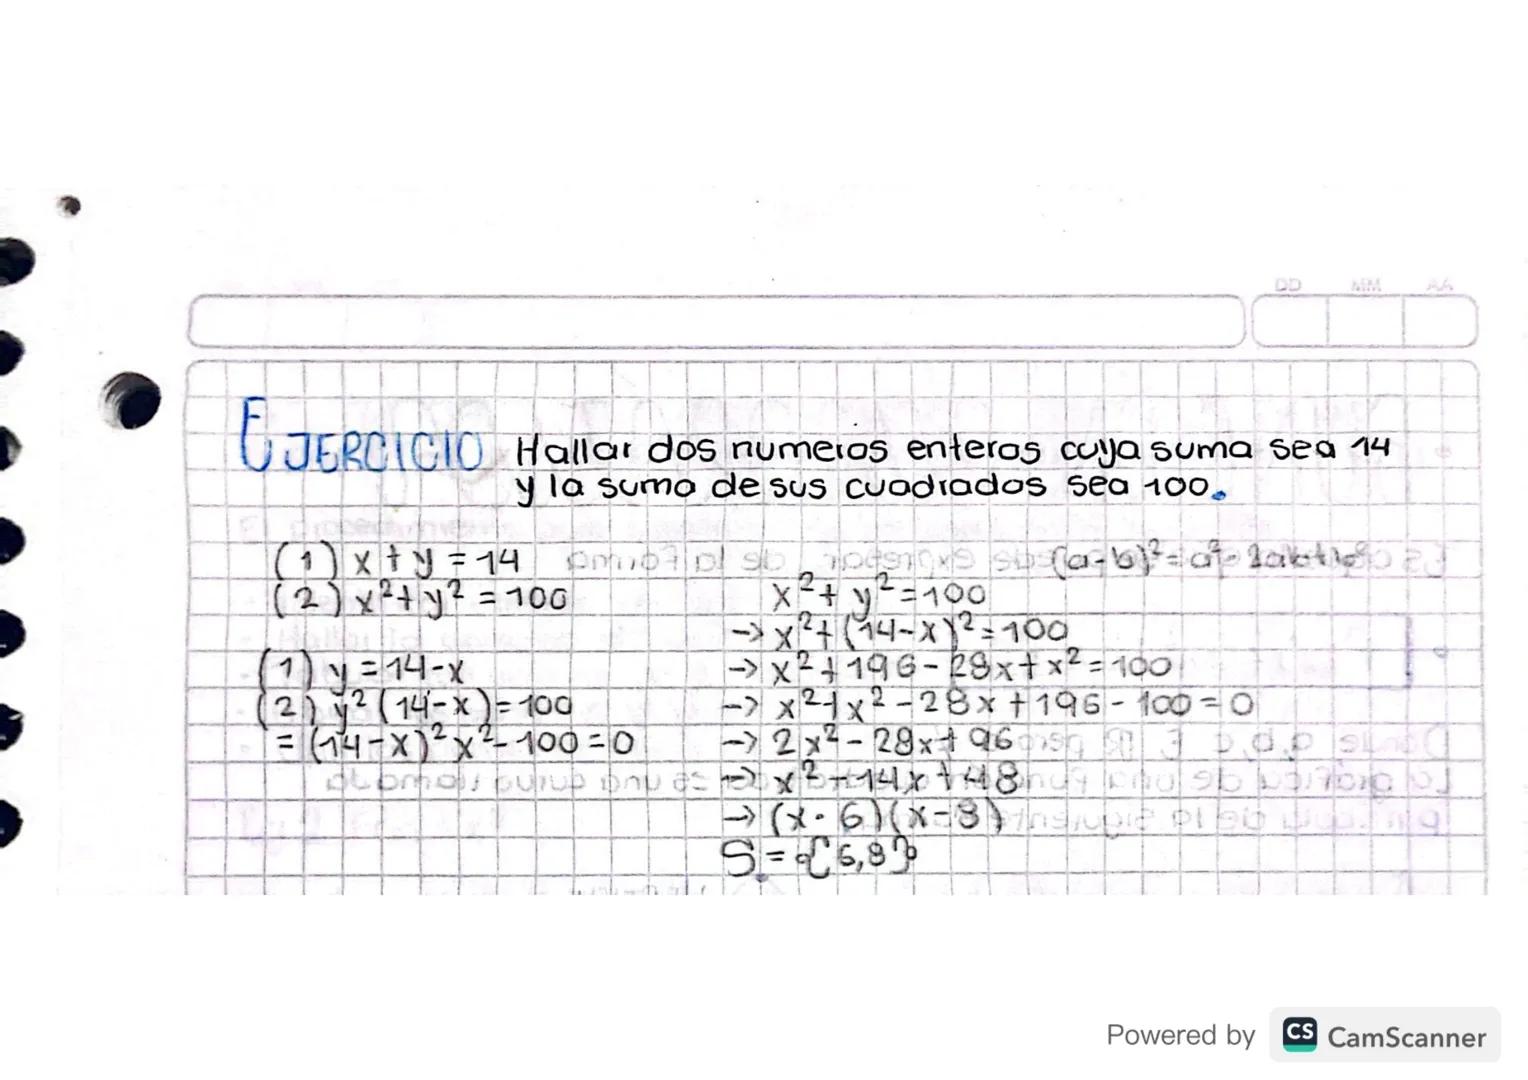 DD MM AA
EJERCICIO Hallar dos numeros enteros cuya suma sea 14
y la suma de sus cuadrados sea 100.
(1) x + y = 14
(2) x² + y² = 100
(1) y = 14-x
(2) y² (14-x) = 100
= (14-x)² x² - 100 = 0
(a-b)² = a² - 2ab + b²
x² + y² = 100
→ x² + (14-x)² = 100
→ x² + 196 - 28x + x² = 100
→ x² + x² - 28x + 196 - 100 = 0
→ 2x² - 28x + 96
→ x² - 14x + 48
→ (x - 6)(x - 8)
S = {6,8}
Powered by CS CamScanner